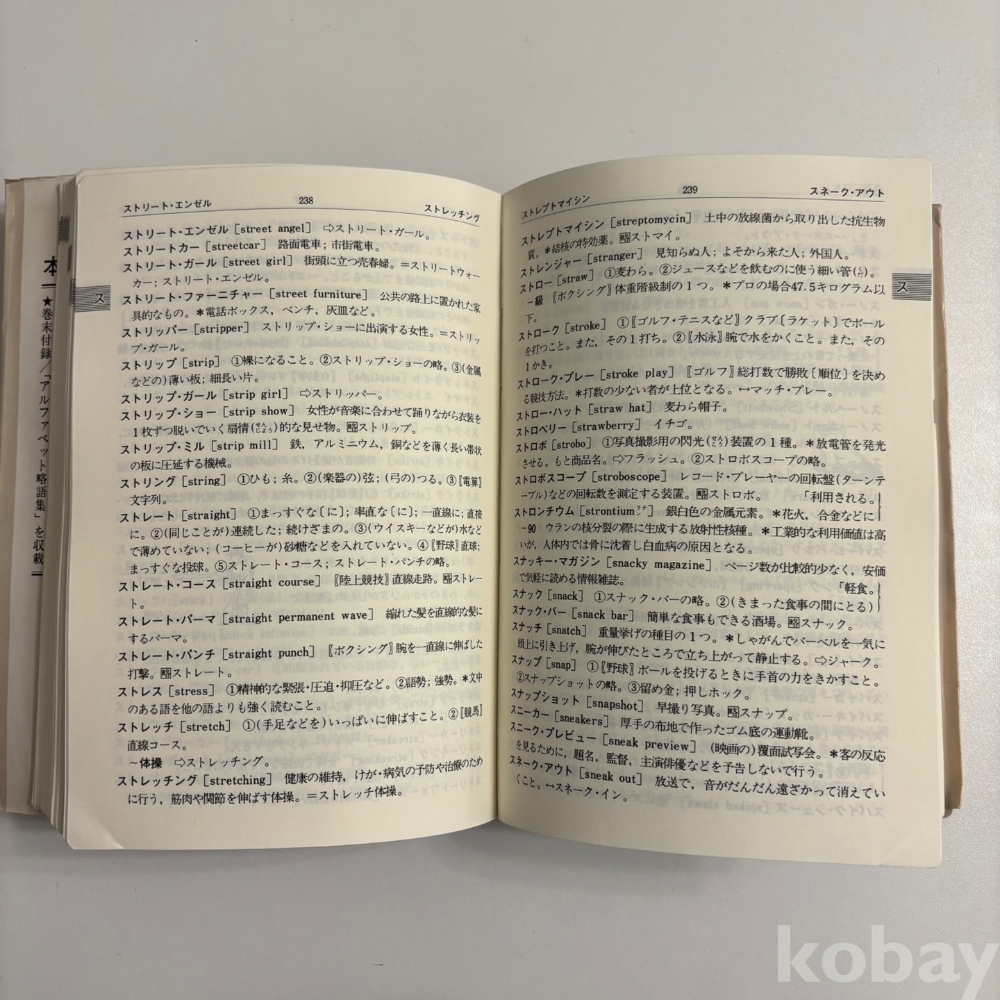 本
★巻末付録/「アルファベット略語集」を収載
ストリート・エンゼル 238 ストレッチング
ストリート・エンゼル [street angel] ⇨ストリート・ガール。
ストリートカー [streetcar] 路面電車；市街電車。
ストリート・ガール [street girl] 街頭に立つ売春婦。＝ストリートウォー
カー；ストリート・エンゼル。
ストリート・ファーニチャー [street furniture] 公共の路上に置かれた家
具的なもの。＊電話ボックス，ベンチ，灰皿など。
ストリッパー [stripper] ストリップ・ショーに出演する女性。＝ストリッ
プ・ガール。
ストリップ [strip] ①裸になること。②ストリップ・ショーの略。③(金属
などの)薄い板；細長い片。
ストリップ・ガール [strip girl] ⇨ストリッパー。
ストリップ・ショー [strip show] 女性が音楽に合わせて踊りながら衣装を
1枚ずつ脱いでいく扇情(せんじょう)的な見せ物。略ストリップ。
ストリップ・ミル [strip mill] 鉄，アルミニウム，銅などを薄く長い帯状
の板に圧延する機械。
ストリング [string] ①ひも；糸。②(楽器の)弦；(弓の)つる。③〖電算〗
文字列。
ストレート [straight] ①まっすぐな〔に〕；率直な〔に〕；一直線に；直接
に。②(同じことが)連続した；続けざまの。③(ウイスキーなどが)水など
で薄めていない；(コーヒーが)砂糖などを入れていない。④〖野球〗直球；
まっすぐな投球。⑤ストレート・コース；ストレート・パンチの略。
ストレート・コース [straight course] 〖陸上競技〗直線走路。略ストレー
ト。
ストレート・パーマ [straight permanent wave] 縮れた髪を直線的な髪に
するパーマ。
ストレート・パンチ [straight punch] 〖ボクシング〗腕を一直線に伸ばした
打撃。略ストレート。
ストレス [stress] ①精神的な緊張・圧迫・抑圧など。②語勢；強勢。＊文中
のある語を他の語よりも強く読むこと。
ストレッチ [stretch] ①(手足などを)いっぱいに伸ばすこと。②〖競馬〗
直線コース。
～体操 ⇨ストレッチング。
ストレッチング [stretching] 健康の維持，けが・病気の予防や治療のため
に行う，筋肉や関節を伸ばす体操。＝ストレッチ体操。
ストレプトマイシン 239 スネーク・アウト
ス
ストレプトマイシン [streptomycin] 土中の放線菌から取り出した抗生物
質。＊結核の特効薬。略ストマイ。
ストレンジャー [stranger] 見知らぬ人；よそから来た人；外国人。
ストロー [straw] ①麦わら。②ジュースなどを飲むのに使う細い管(くだ)。
～級 〖ボクシング〗体重階級制の1つ。＊プロの場合47.5キログラム以
下。
ストローク [stroke] ①〖ゴルフ・テニスなど〗クラブ〔ラケット〕でボール
を打つこと。また，その1打ち。②〖水泳〗腕で水をかくこと。また，その
1かき。
ストローク・プレー [stroke play] 〖ゴルフ〗総打数で勝敗〔順位〕を決め
る競技方法。＊打数の少ない者が上位となる。↔マッチ・プレー。
ストロー・ハット [straw hat] 麦わら帽子。
ストロベリー [strawberry] イチゴ。
ストロボ [strobo] ①写真撮影用の閃光(せんこう)装置の1種。＊放電管を発光
させる。もと商品名。⇨フラッシュ。②ストロボスコープの略。
ストロボスコープ [stroboscope] レコード・プレーヤーの回転盤(ターンテ
ーブル)などの回転数を測定する装置。略ストロボ。 「利用される。
ストロンチウム [strontium] 銀白色の金属元素。＊花火，合金などに
～90 ウランの核分裂の際に生成する放射性核種。＊工業的な利用価値は高
いが，人体内では骨に沈着し白血病の原因となる。
スナッキー・マガジン [snacky magazine] ページ数が比較的少なく，安価
で気軽に読める情報雑誌。 「軽食。
スナック [snack] ①スナック・バーの略。②(きまった食事の間にとる)
スナック・バー [snack bar] 簡単な食事もできる酒場。略スナック。
スナッチ [snatch] 重量挙げの種目の1つ。＊しゃがんでバーベルを一気に
頭上に引き上げ，腕が伸びたところで立ち上がって静止する。⇨ジャーク。
スナップ [snap] ①〖野球〗ボールを投げるときに手首の力をきかすこと。
②スナップショットの略。③留め金；押しホック。
スナップショット [snapshot] 早撮り写真。略スナップ。
スニーカー [sneakers] 厚手の布地で作ったゴム底の運動靴。
スニーク・プレビュー [sneak preview] (映画の)覆面試写会。＊客の反応
を見るために，題名，監督，主演俳優などを予告しないで行う。
スネーク・アウト [sneak out] 放送で，音がだんだん遠ざかって消えてい
くこと。↔スネーク・イン。
ス
kobay